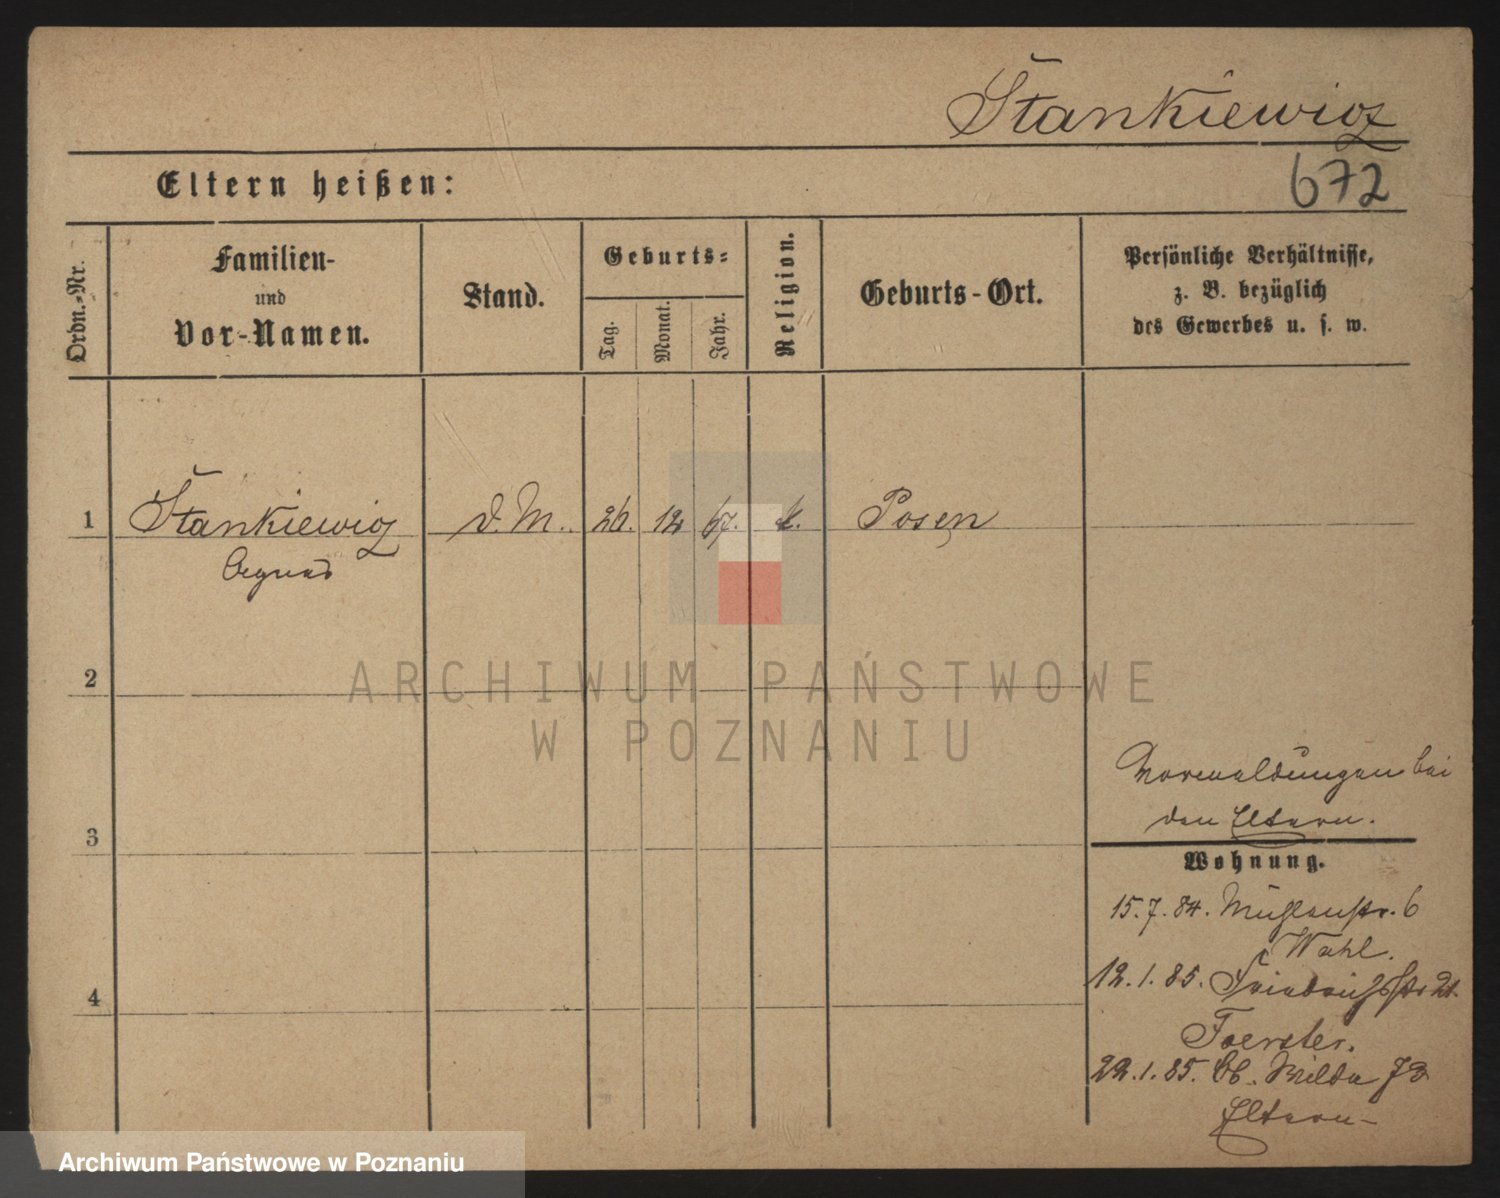 Stankiewicz
672
Eltern heißen:
Ordn.-Nr.
Familien-
und
Vor-Namen.
Stand.
Geburts-
Tag.
Monat.
Jahr.
Religion.
Geburts-Ort.
Persönliche Verhältnisse,
z. B. bezüglich
des Gewerbes u. s. w.
1 Stankiewicz d. M. 26. 12 67. k. Posen
Agnes
2
ARCHIWUM PAŃSTWOWE
W POZNANIU
3
bei
den Eltern.
Wohnung.
15.7.84. Mühlenstr. 6
Wahl.
12.1.85. Friedrichstr 21.
Foerster.
4
22.1.85. Ob. Wilda 73
Eltern
Archiwum Państwowe w Poznaniu